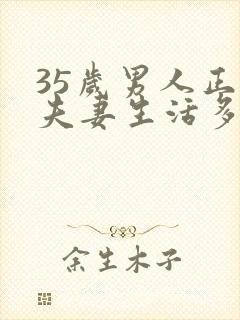 35岁男人正
夫妻生活多
余生木子